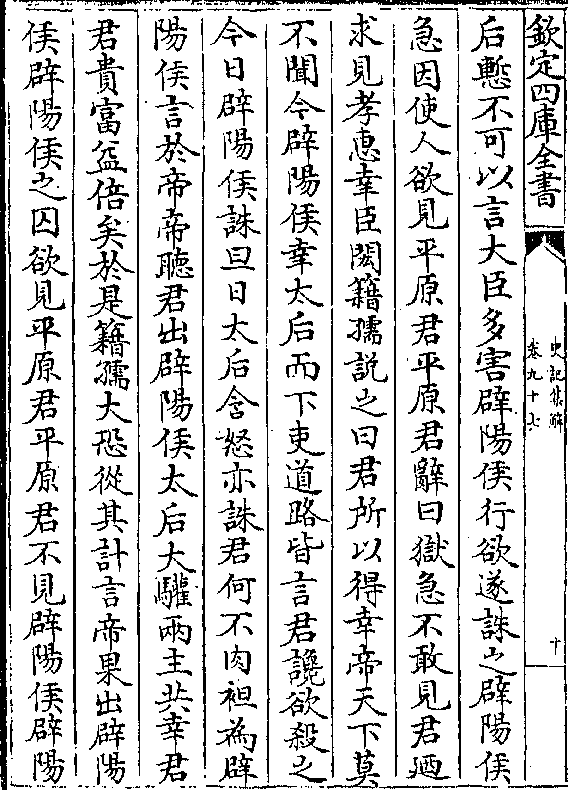 欽定四庫全書
史記集解
卷九十七
十
后慙不可以言大臣多害辟陽侯行欲遂誅之辟陽侯
急因使人欲見平原君平原君辭曰獄急不敢見君廼
求見孝惠幸臣閎籍孺説之曰君所以得幸帝天下莫
不聞今辟陽侯幸太后而下吏道路皆言君讒欲殺之
今日辟陽侯誅旦日太后含怒亦誅君何不肉袒為辟
陽侯言於帝帝聽君出辟陽侯太后大驩兩主共幸君
君貴富益倍矣於是籍孺大恐從其計言帝果出辟陽
侯辟陽侯之囚欲見平原君平原君不見辟陽侯辟陽